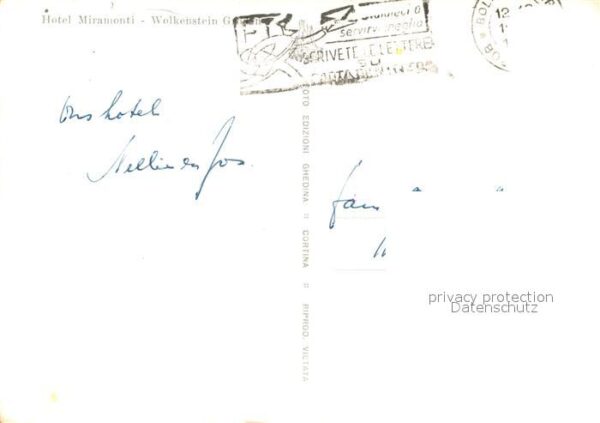 Hotel Miramonti - Wolkenstein
BOL
12
servirvi meglio
SCRIVETE LE LETTERE
SU
Ons hotel
Nellie en Jos.
Fam " "
"
FOTO EDIZIONI GHEDINA - CORTINA - RIPROD. VIETATA
privacy protection
Datenschutz